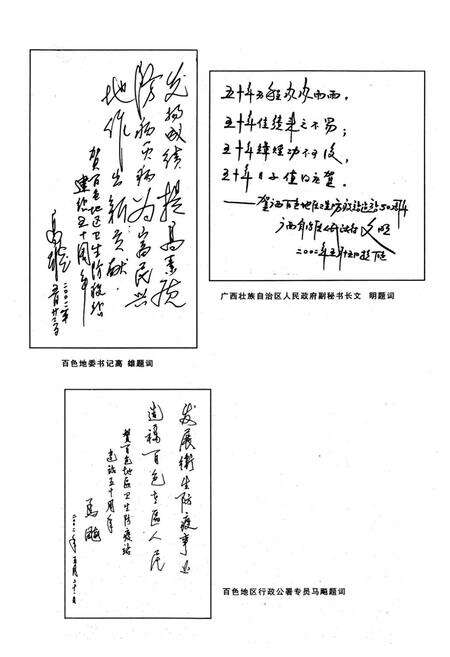 发扬成绩 提高素质
防病灭病 为富民兴
地作出新贡献
贺百色地区卫生防疫站
建站五十周年
高雄
二〇〇二年
百色地委书记高 雄题词
五十年历程风风雨雨,
五十年佳绩来之不易;
五十年辉煌功不可没,
五十年日子值得庆贺。
——贺百色地区卫生防疫站建站50周年
广西自治区人民政府 文明
广西壮族自治区人民政府副秘书长文 明题词
发展卫生防疫事业
造福百色老区人民
贺百色地区卫生防疫站
建站五十周年
马飚
二〇〇二年五月二十八日
百色地区行政公署专员马飚题词